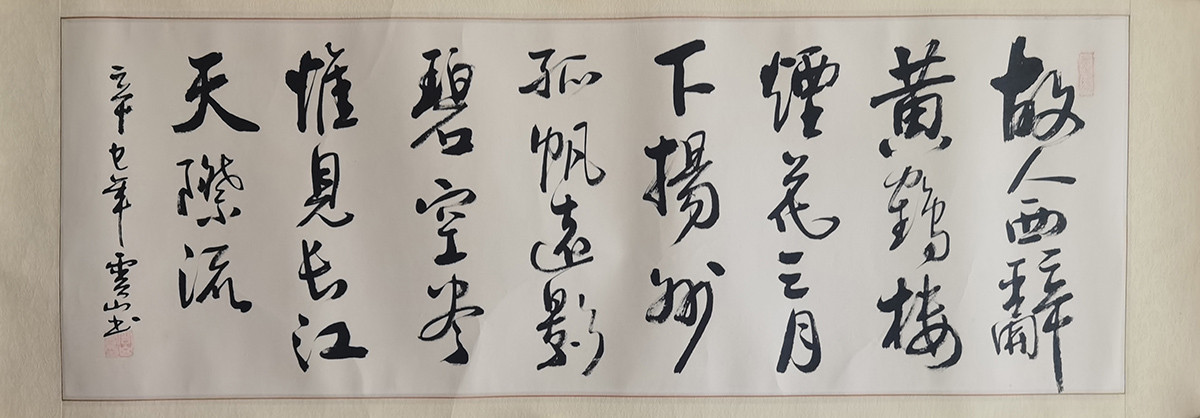 故人西辭
黄鶴楼
煙花三月
下揚州
孤帆遠影
碧空尽
惟見長江
天際流
辛巳年 雲山书